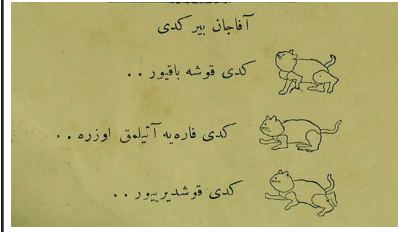 آقاجان بیر كدی
كدی قوشه باقیور . .
كدی فاره‌یه آتیلمق اوزره . .
كدی قوشدیرییور . .